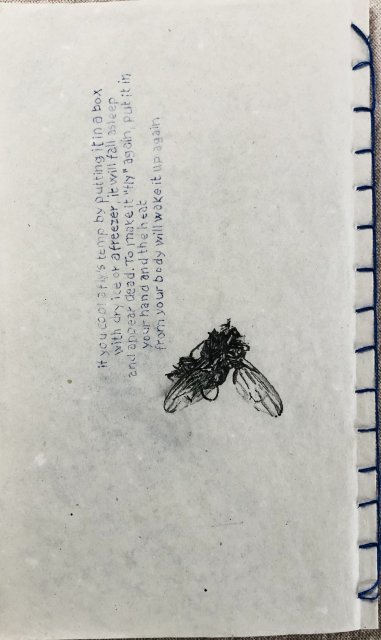 if you cool a fly's temp by putting it in a box
with dry ice or a freezer, it will fall asleep
and appear dead. To make it "fly" again, put it in
your hand and the heat
from your body will wake it up again